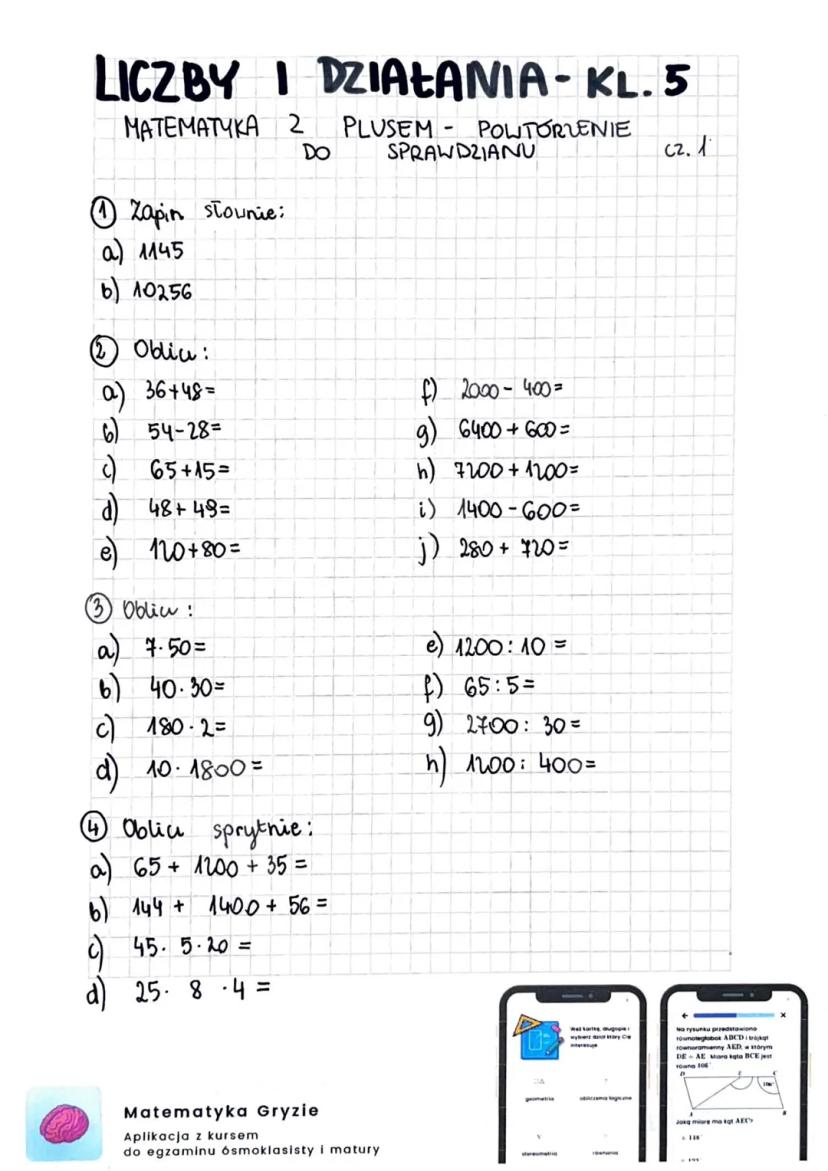 LICZBY I DZIAŁANIA - KL. 5
MATEMATYKA Z PLUSEM - POWTÓRZENIE
DO SPRAWDZIANU cz. 1
① Zapisz słownie:
a) 1145
b) 10256
② Oblicz:
a) 36+48=
b) 54-28=
c) 65+15=
d) 48+49=
e) 120+80=
f) 2000-400=
g) 6400+600=
h) 7200+1200=
i) 1400-600=
j) 280+720=
③ Oblicz:
a) 7·50=
b) 40·30=
c) 180·2=
d) 10·1800=
e) 1200:10=
f) 65:5=
g) 2700:30=
h) 1200:400=
④ Oblicz sprytnie:
a) 65+1200+35=
b) 144+1400+56=
c) 45·5·20=
d) 25·8·4=
Matematyka Gryzie
Aplikacja z kursem
do egzaminu ósmoklasisty i matury
Weź kartkę, długopis i
wybierz dział który Cię
interesuje
geometria obliczenia logiczne
stereometria równania
Na rysunku przedstawiono
równoległobok ABCD i trójkąt
równoramienny AED, w którym
DE = AE. Miara kąta BCE jest
równa 106°
D E C
106°
A B
Jaką miarę ma kąt AEC?